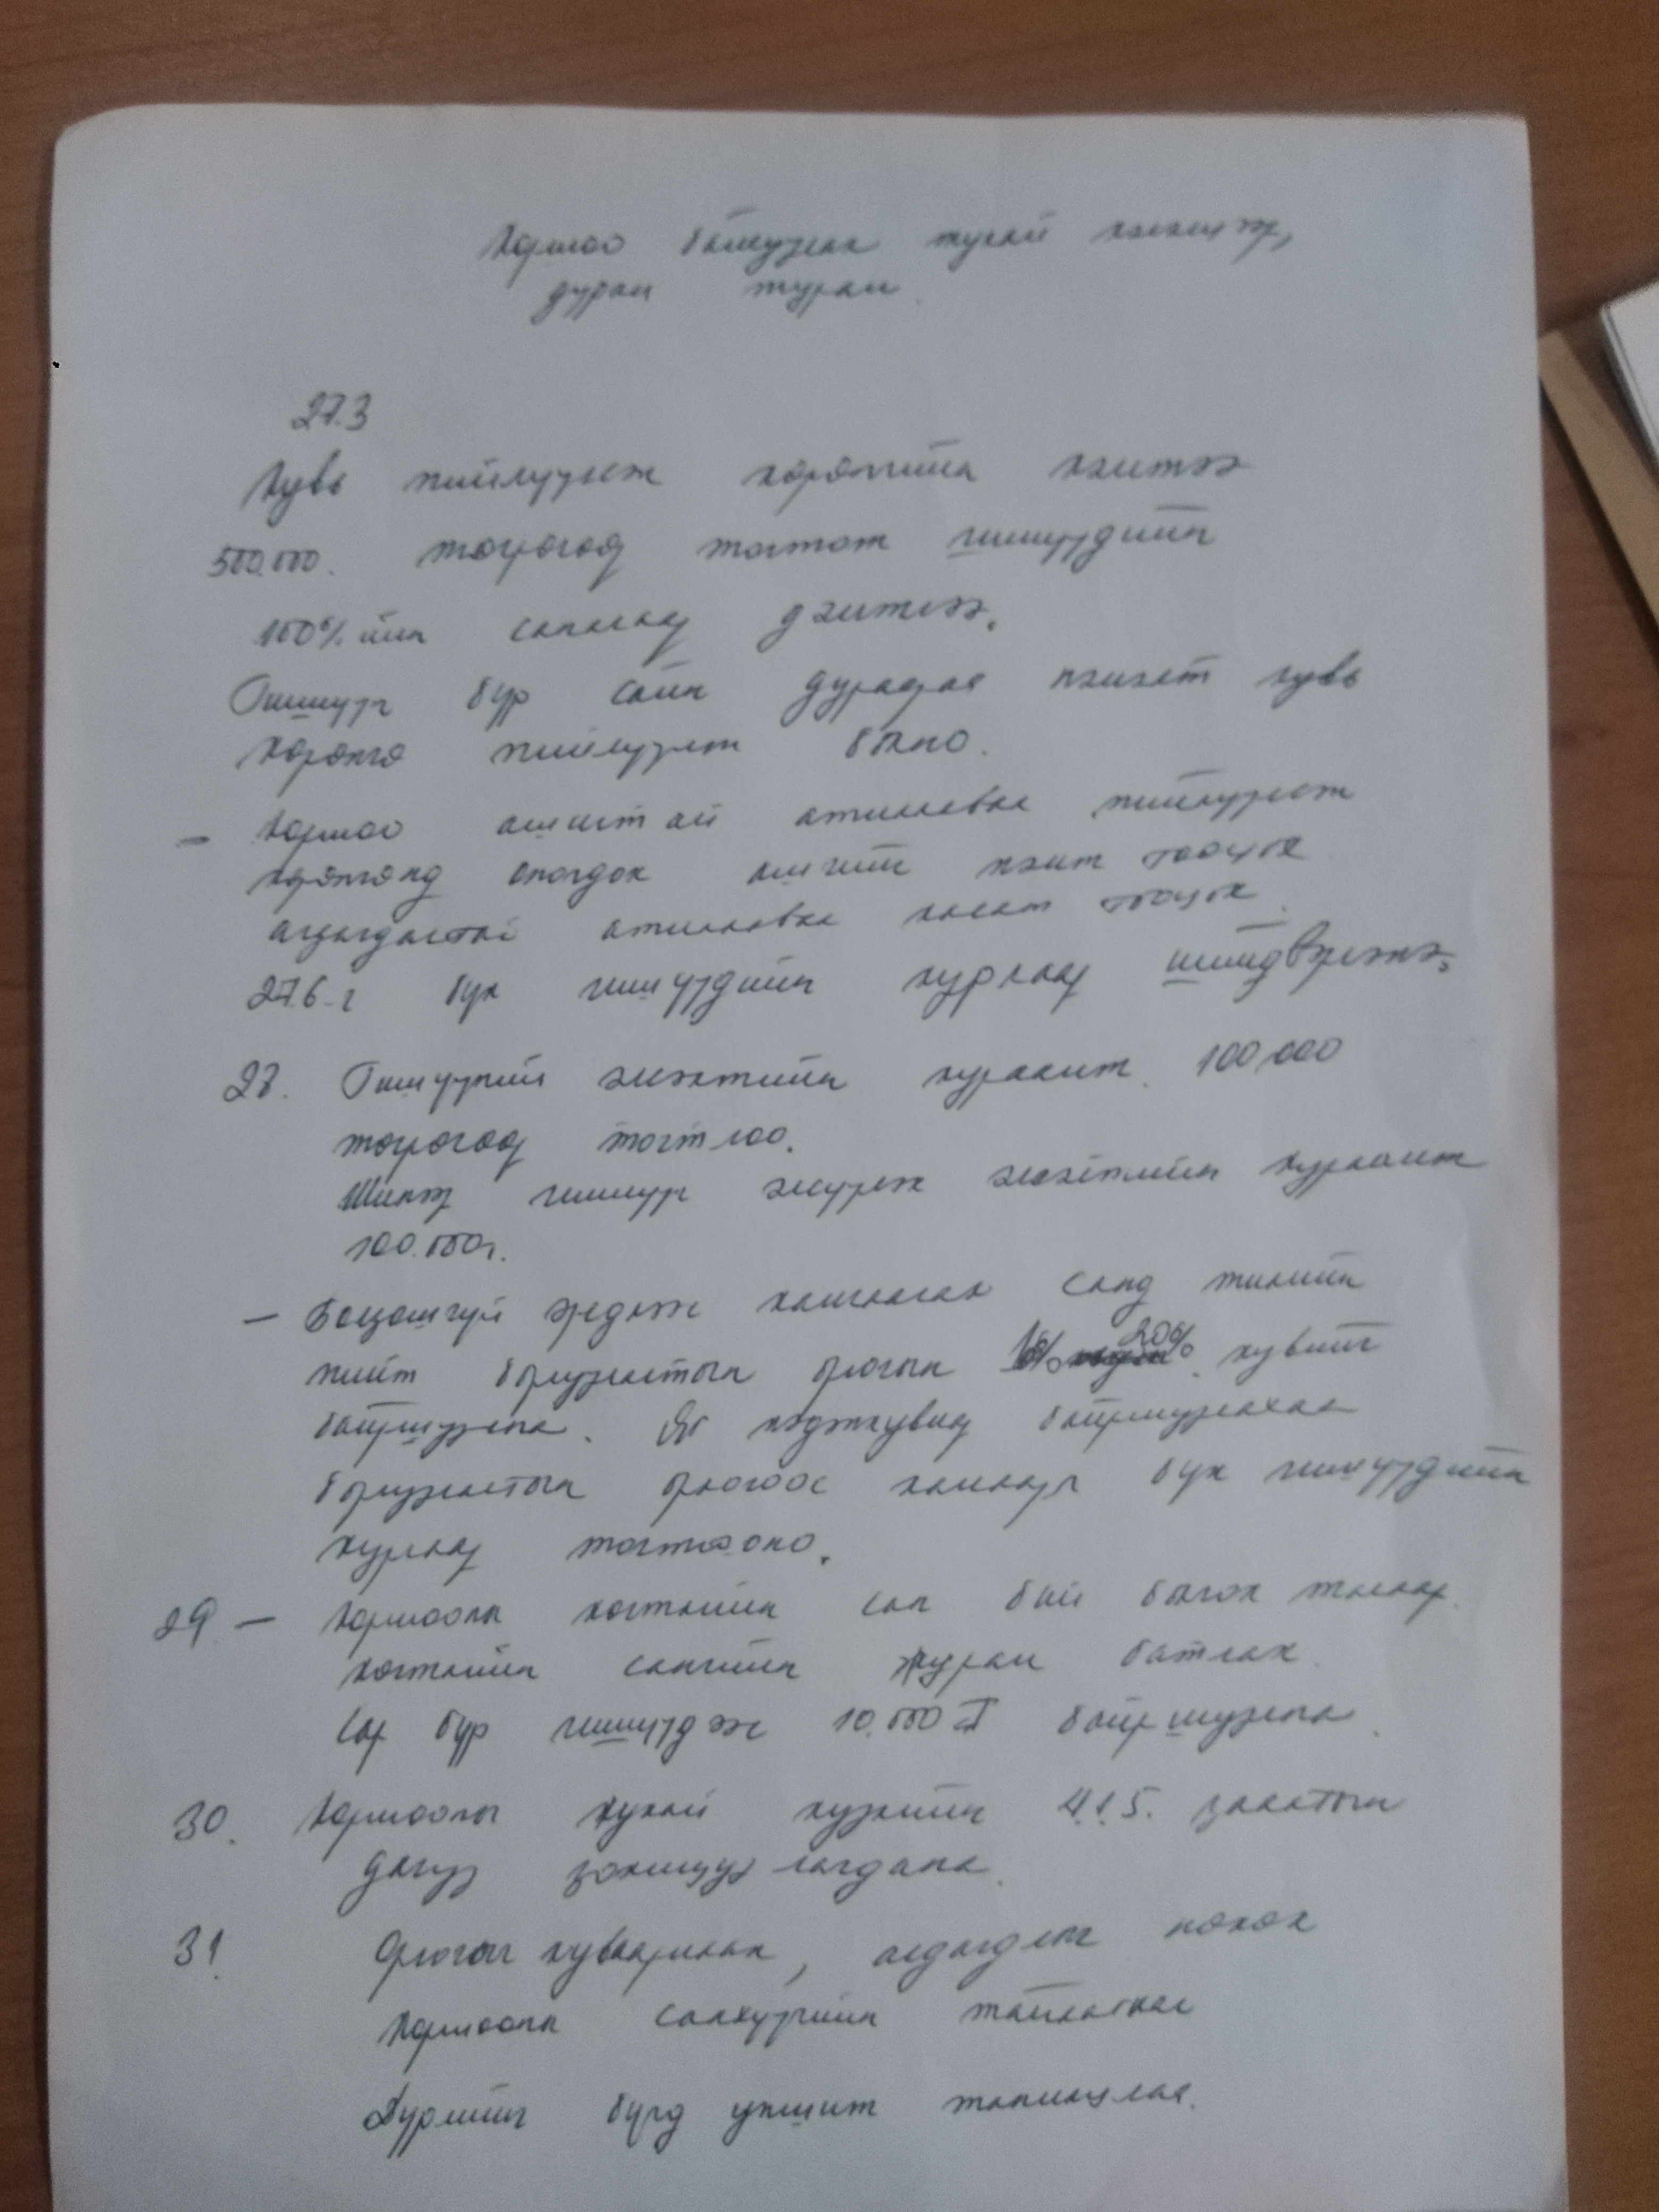 Хоршоо байгуулах тухай хэлэлцээр,
дүрэм журам
27.3
Хувь нийлүүлж хөрөнгийн хэмжээ
500.000. төгрөгөөр тогтож гишүүдийн
100% ийн саналаар дэмжээ.
Гишүүн бүр сайн дураараа нэмэлт хувь
хөрөнгө нийлүүлж болно.
– Хоршоо ашигтай ажиллавал нийлүүлсэн
хөрөнгөнд ногдох ашгийг нэмж тооцох
алдагдалтай ажиллавал хасаж тооцох.
27.6-г бүх гишүүдийн хурлаар шийдвэрлэнэ.
28. Гишүүний элсэлтийн хураамж 100,000
төгрөгөөр тогтлоо.
Шинээр гишүүн элсүүлэх элсэлтийн хураамж
100.000₮.
– Боломжгүй эрсдэлээс хамгаалах санд жилийн
нийт борлуулалтын орлогын 20% хувийг
байршуулна. Яг хэдэн хувиар байршуулахаа
борлуулалтын орлогоос хамаарч бүх гишүүдийн
хурлаар тогтооно.
29 – Хоршооны нөөцийн сан бий болгох талаар.
сангийн журам батлах.
Сар бүр гишүүдээс 10.000₮ байршуулна.
30. Хоршооны тухай хуулийн 41.5. заалтын
дагуу зохицуулагдана.
31. Орлого хуваарилах, алдагдлыг нөхөх
Хоршооны санхүүгийн тайлагнал
Дүрмийг бүгд уншиж танилцлаа.